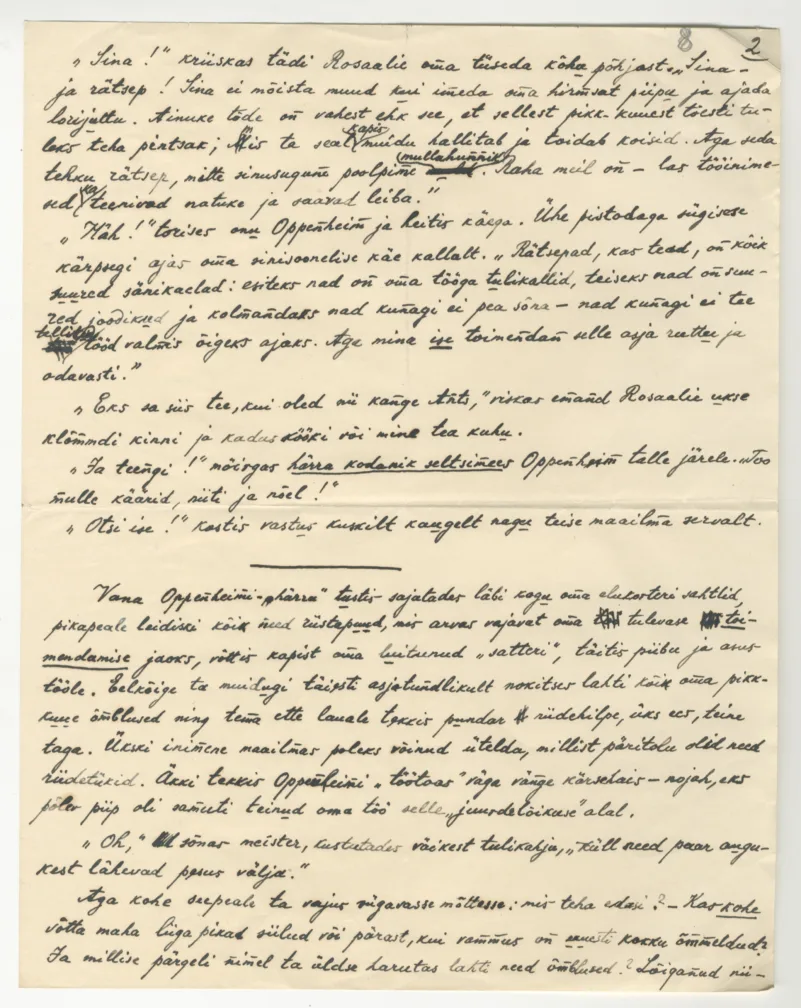 8 2
„Sina!“ kriiskas tädi Rosaalie oma tüseda kõhu põhjast. „Sina –
ja rätsep! Sina ei mõista muud kui imeda oma hirmsat piipu ja ajada
lorijuttu. Ainuke tõde on vahest ehk see, et sellest pikk-kuuest tõesti tu-
leks teha pintsak; mis ta seal kapis muidu hallitab ja toidab koisid. Aga seda
tehku rätsep, mitte sinusugune poolpime mullahunnik. Raha meil on – las tööinime-
sed ka teenivad natuke ja saavad leiba.“
„Häh!“ torises onu Oppenheim ja heitis käega. Ühe pistodaga sügisese
kärpsegi ajas oma sinisoonelise käe kallalt. „Rätsepad, kas tead, on kõik
suured sänikaelad: esiteks nad on oma tööga tulikallid, teiseks nad on suu-
red joodikud ja kolmandaks nad kunagi ei pea sõna – nad kunagi ei tee
tellitud tööd valmis õigeks ajaks. Aga mina ise toimendan selle asja ruttu ja
odavasti.“
„Eks sa siis tee, kui oled nii kange Ants,“ viskas emand Rosaalie ukse
klõmmdi kinni ja kadus kööki või mine tea kuhu.
„Ja teengi!“ mõirgas härra kodanik seltsimees Oppenheim talle järele. „Too
mulle käärid, niiti ja nõel!“
„Otsi ise!“ kostis vastus kuskilt kaugelt nagu teise maailma servalt.
Vana Oppenheimi-„härra“ tustis sajatades läbi kogu oma elukorteri sahtlid,
pikapeale leidiski kõik need riistapuud, mis arvas vajavat oma tulevase toi-
mendamise jaoks, võttis kapist oma luitunud „satteri“, täitis piibu ja asus
tööle. Eelkõige ta muidugi täiesti asjatundlikult nokitses lahti kõik oma pikk-
kuue õmblused ning tema ette lauale tekkis pundar riidehilpe, üks ees, teine
taga. Ükski inimene maailmas poleks võinud ütelda, millist päritolu olid need
riidetükid. Äkki tekkis Oppenheimi „töötoas“ väga vänge kärsehais – nojah, eks
põlev piip oli samuti teinud oma töö selle „juurdelõikuse“ alal.
„Oh,“ sõnas meister, kustutades väikest tulikahju, „küll need paar augu-
kest lähevad pesus välja.“
Aga kohe seepeale ta vajus sügavasse mõttesse: mis teha edasi? – Kas kohe
võtta maha liiga pikad siilud või pärast, kui vammus on uuesti kokku õmmeldud?
Ja millise pärgeli nimel ta üldse harutas lahti need õmblused? Lõiganud nii-